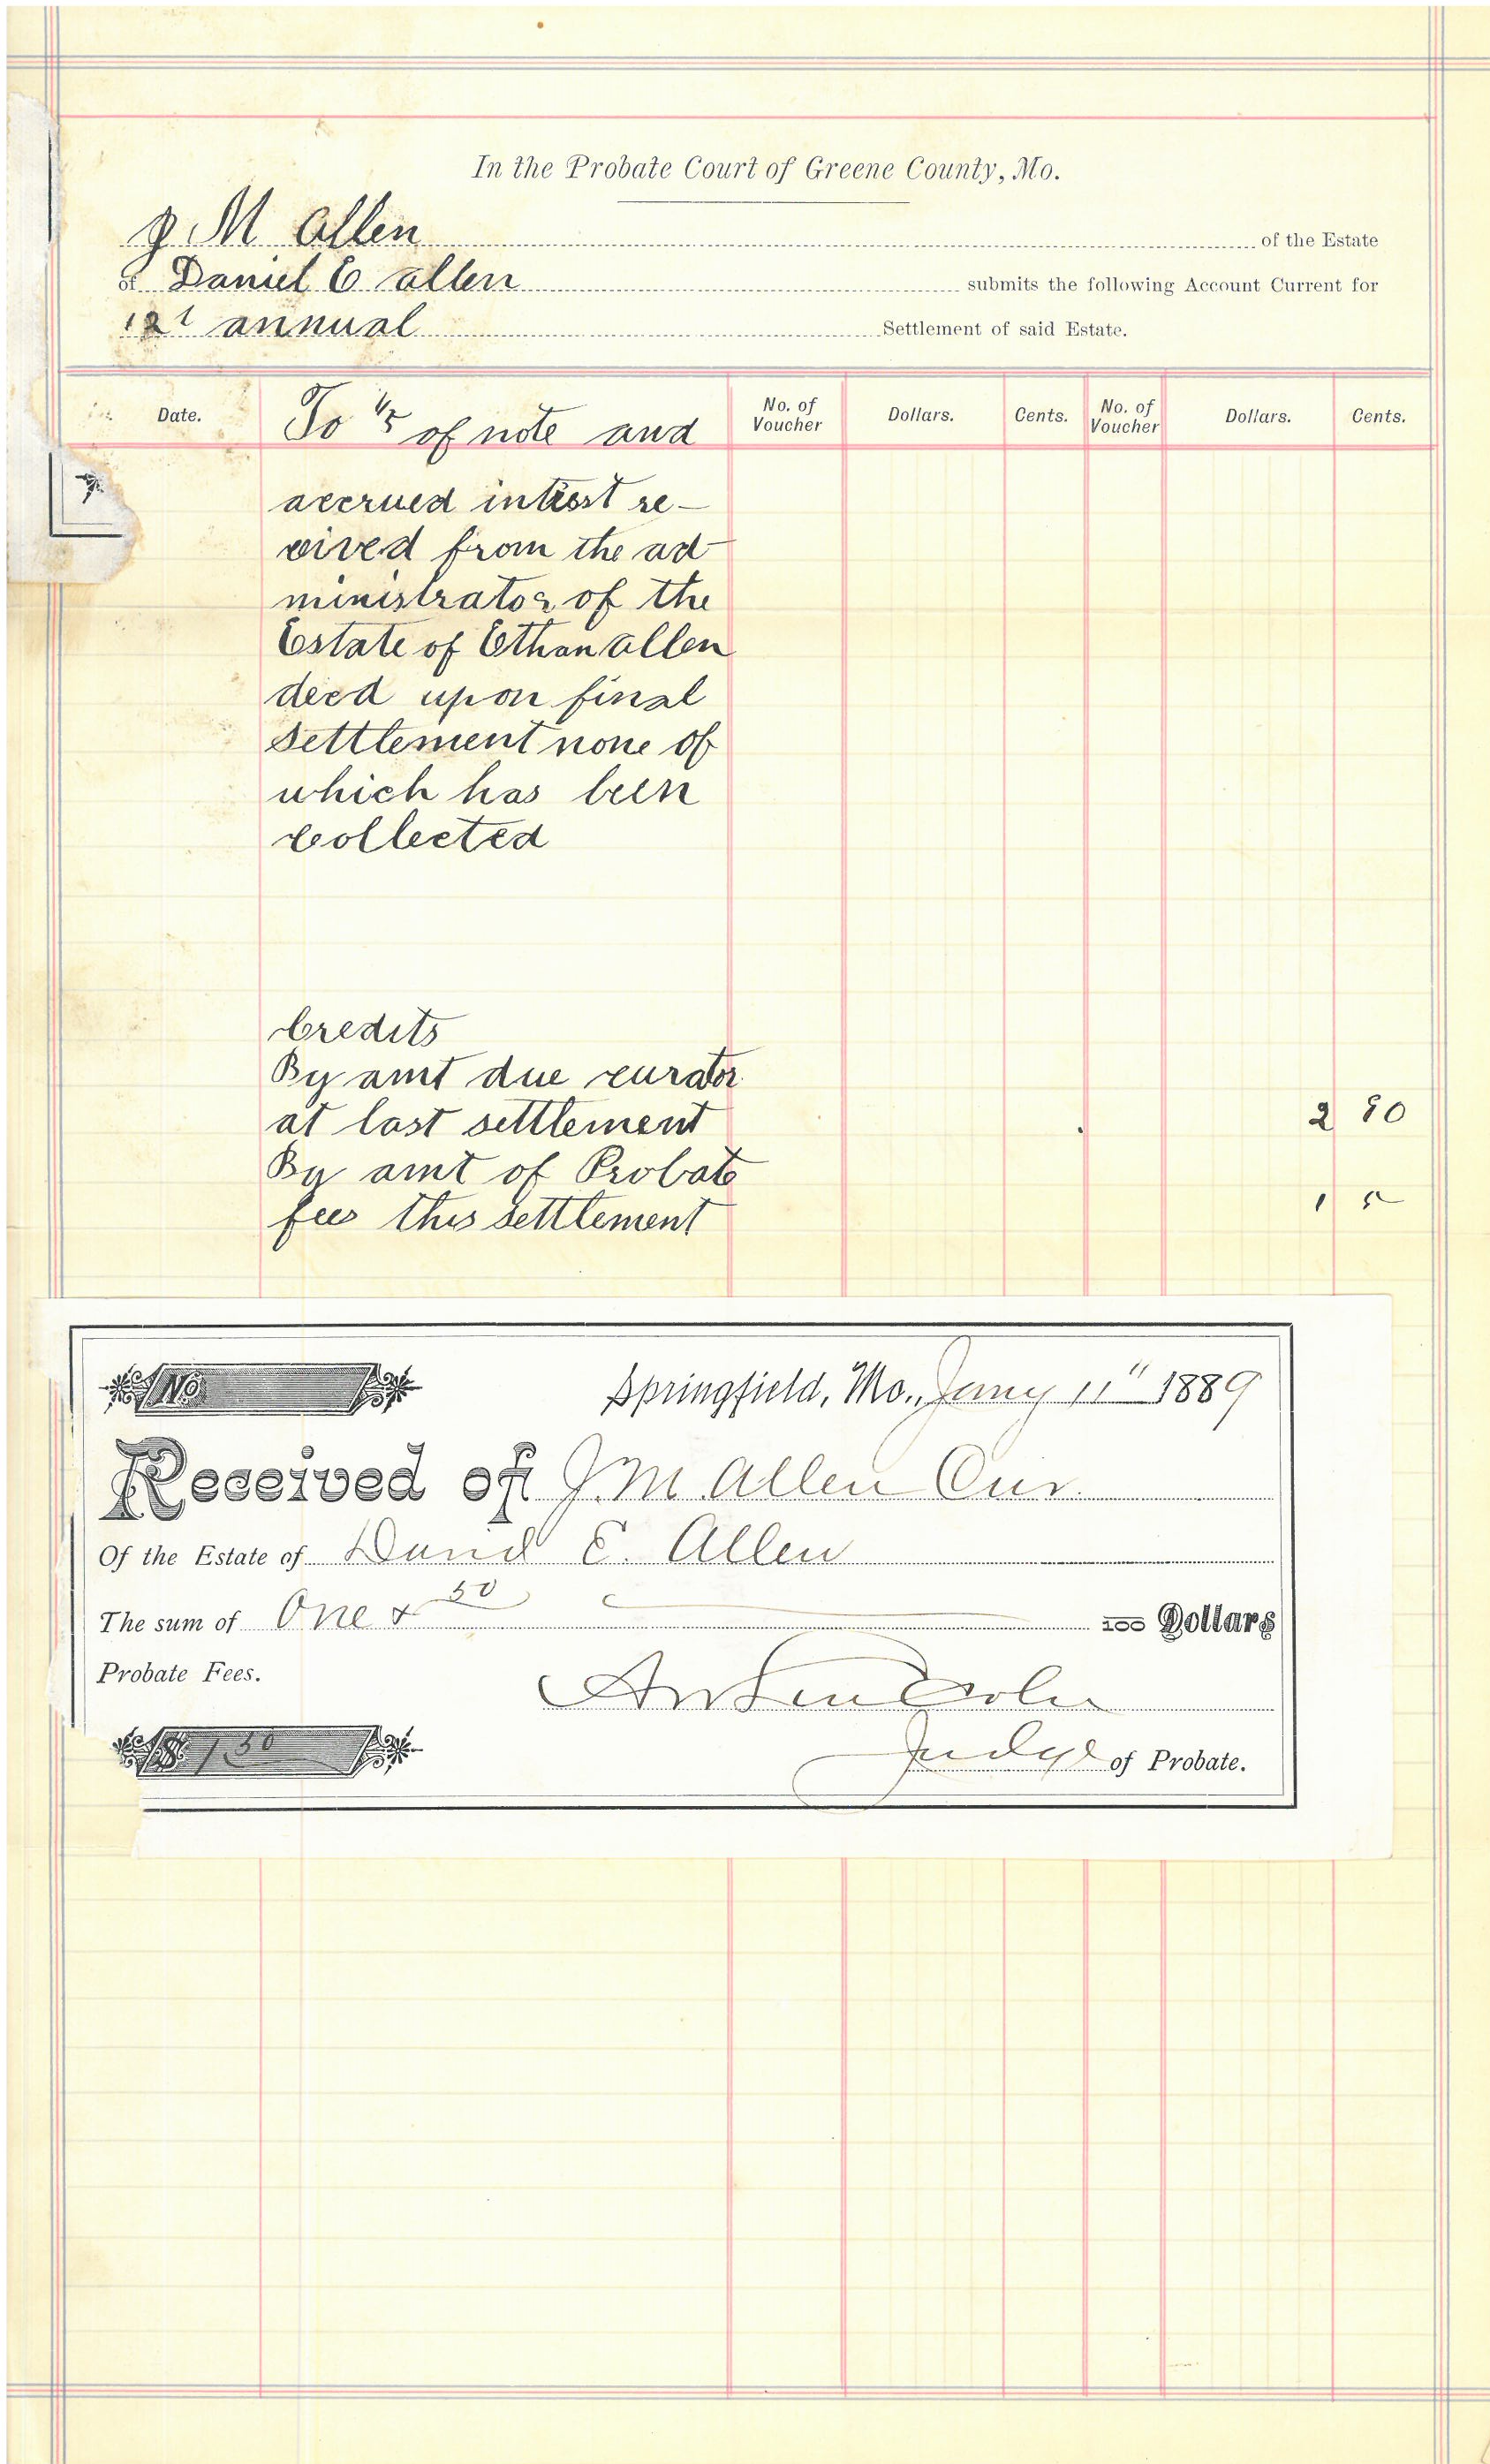 In the Probate Court of Greene County, Mo.
J M Allen of the Estate
of Daniel E Allen submits the following Account Current for
1st annual Settlement of said Estate.
Date. To 1/5 of note and No. of Voucher Dollars. Cents. No. of Voucher Dollars. Cents.
accrued intrest re-
cived from the ad-
ministrator of the
Estate of Ethan Allen
decd upon final
settlement none of
which has been
collected
Credits
By amt due curator
at last settlement 2 90
By amt of Probate
fees this settlement 1 5
No Springfield, Mo., Jany 11" 1889
Received of J.M Allen Cur.
Of the Estate of David E. Allen
The sum of One & 50 100 Dollars
Probate Fees.
$ 1 50 Judge of Probate.